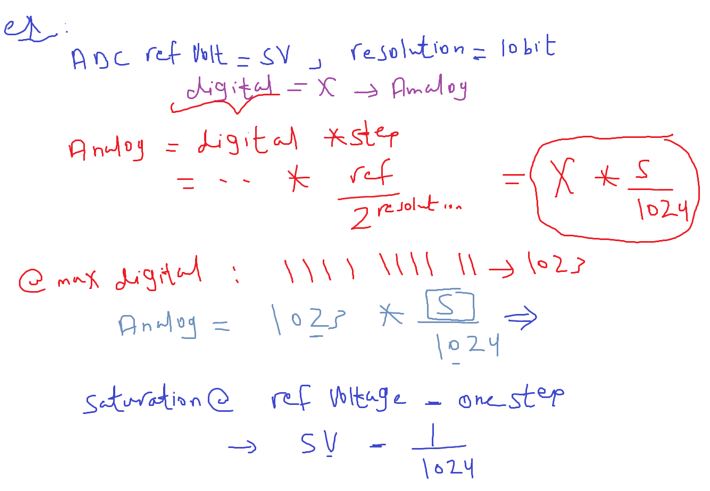 ex:
ADC ref Volt = 5V, resolution = 10 bit
digital = X → Analog
Analog = digital * step
= .. * ref / 2^resolution = X * 5/1024
@ max digital : 1111 1111 11 → 1023
Analog = 1023 * 5/1024 ⇒
saturation @ ref voltage - one step
→ 5V - 1/1024